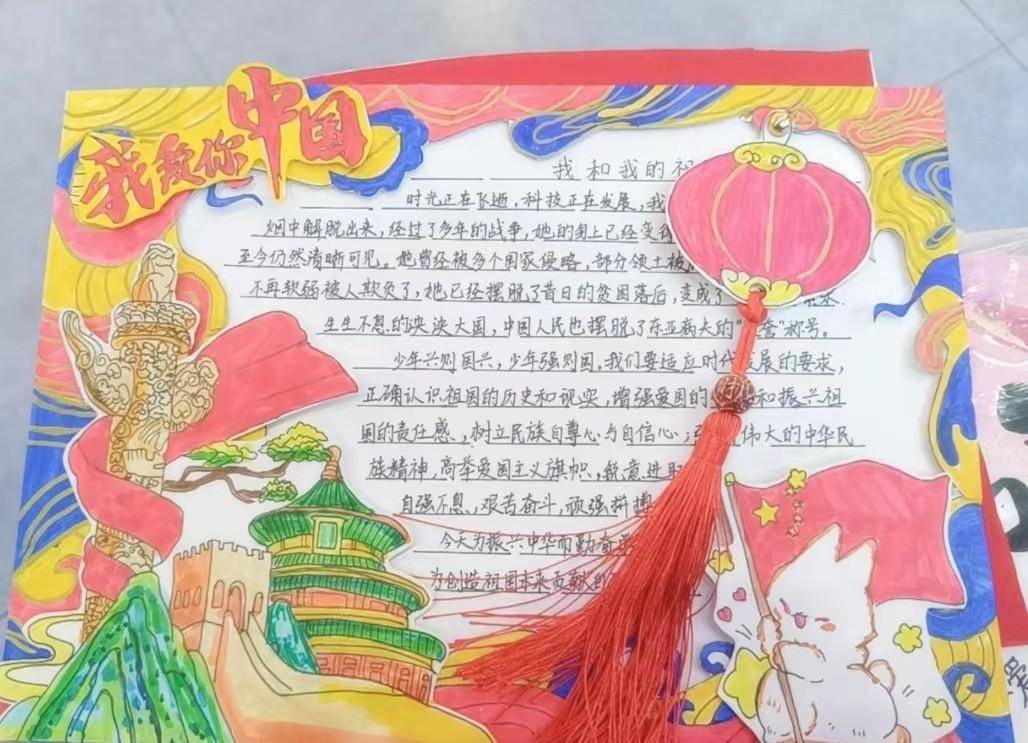 我爱你中国
我和我的祖
时光正在飞逝，科技正在发展，我
烟中解脱出来，经过了多年的战争，她的身上已经变得
至今仍然清晰可见。她曾经被多个国家侵略，部分领土被
不再软弱被人欺负了，她已经摆脱了昔日的贫困落后，变成了
生生不息的泱泱大国，中国人民也摆脱了东亚病夫的"称号。
少年兴则国兴，少年强则国，我们要适应时代发展的要求，
正确认识祖国的历史和现实，增强爱国的和振兴祖
国的责任感，树立民族自尊心与自信心；伟大的中华民
族精神，高举爱国主义旗帜，锐意进取
自强不息，艰苦奋斗，顽强拼搏
今天为振兴中华而勤奋
为创造祖国未来贡献自